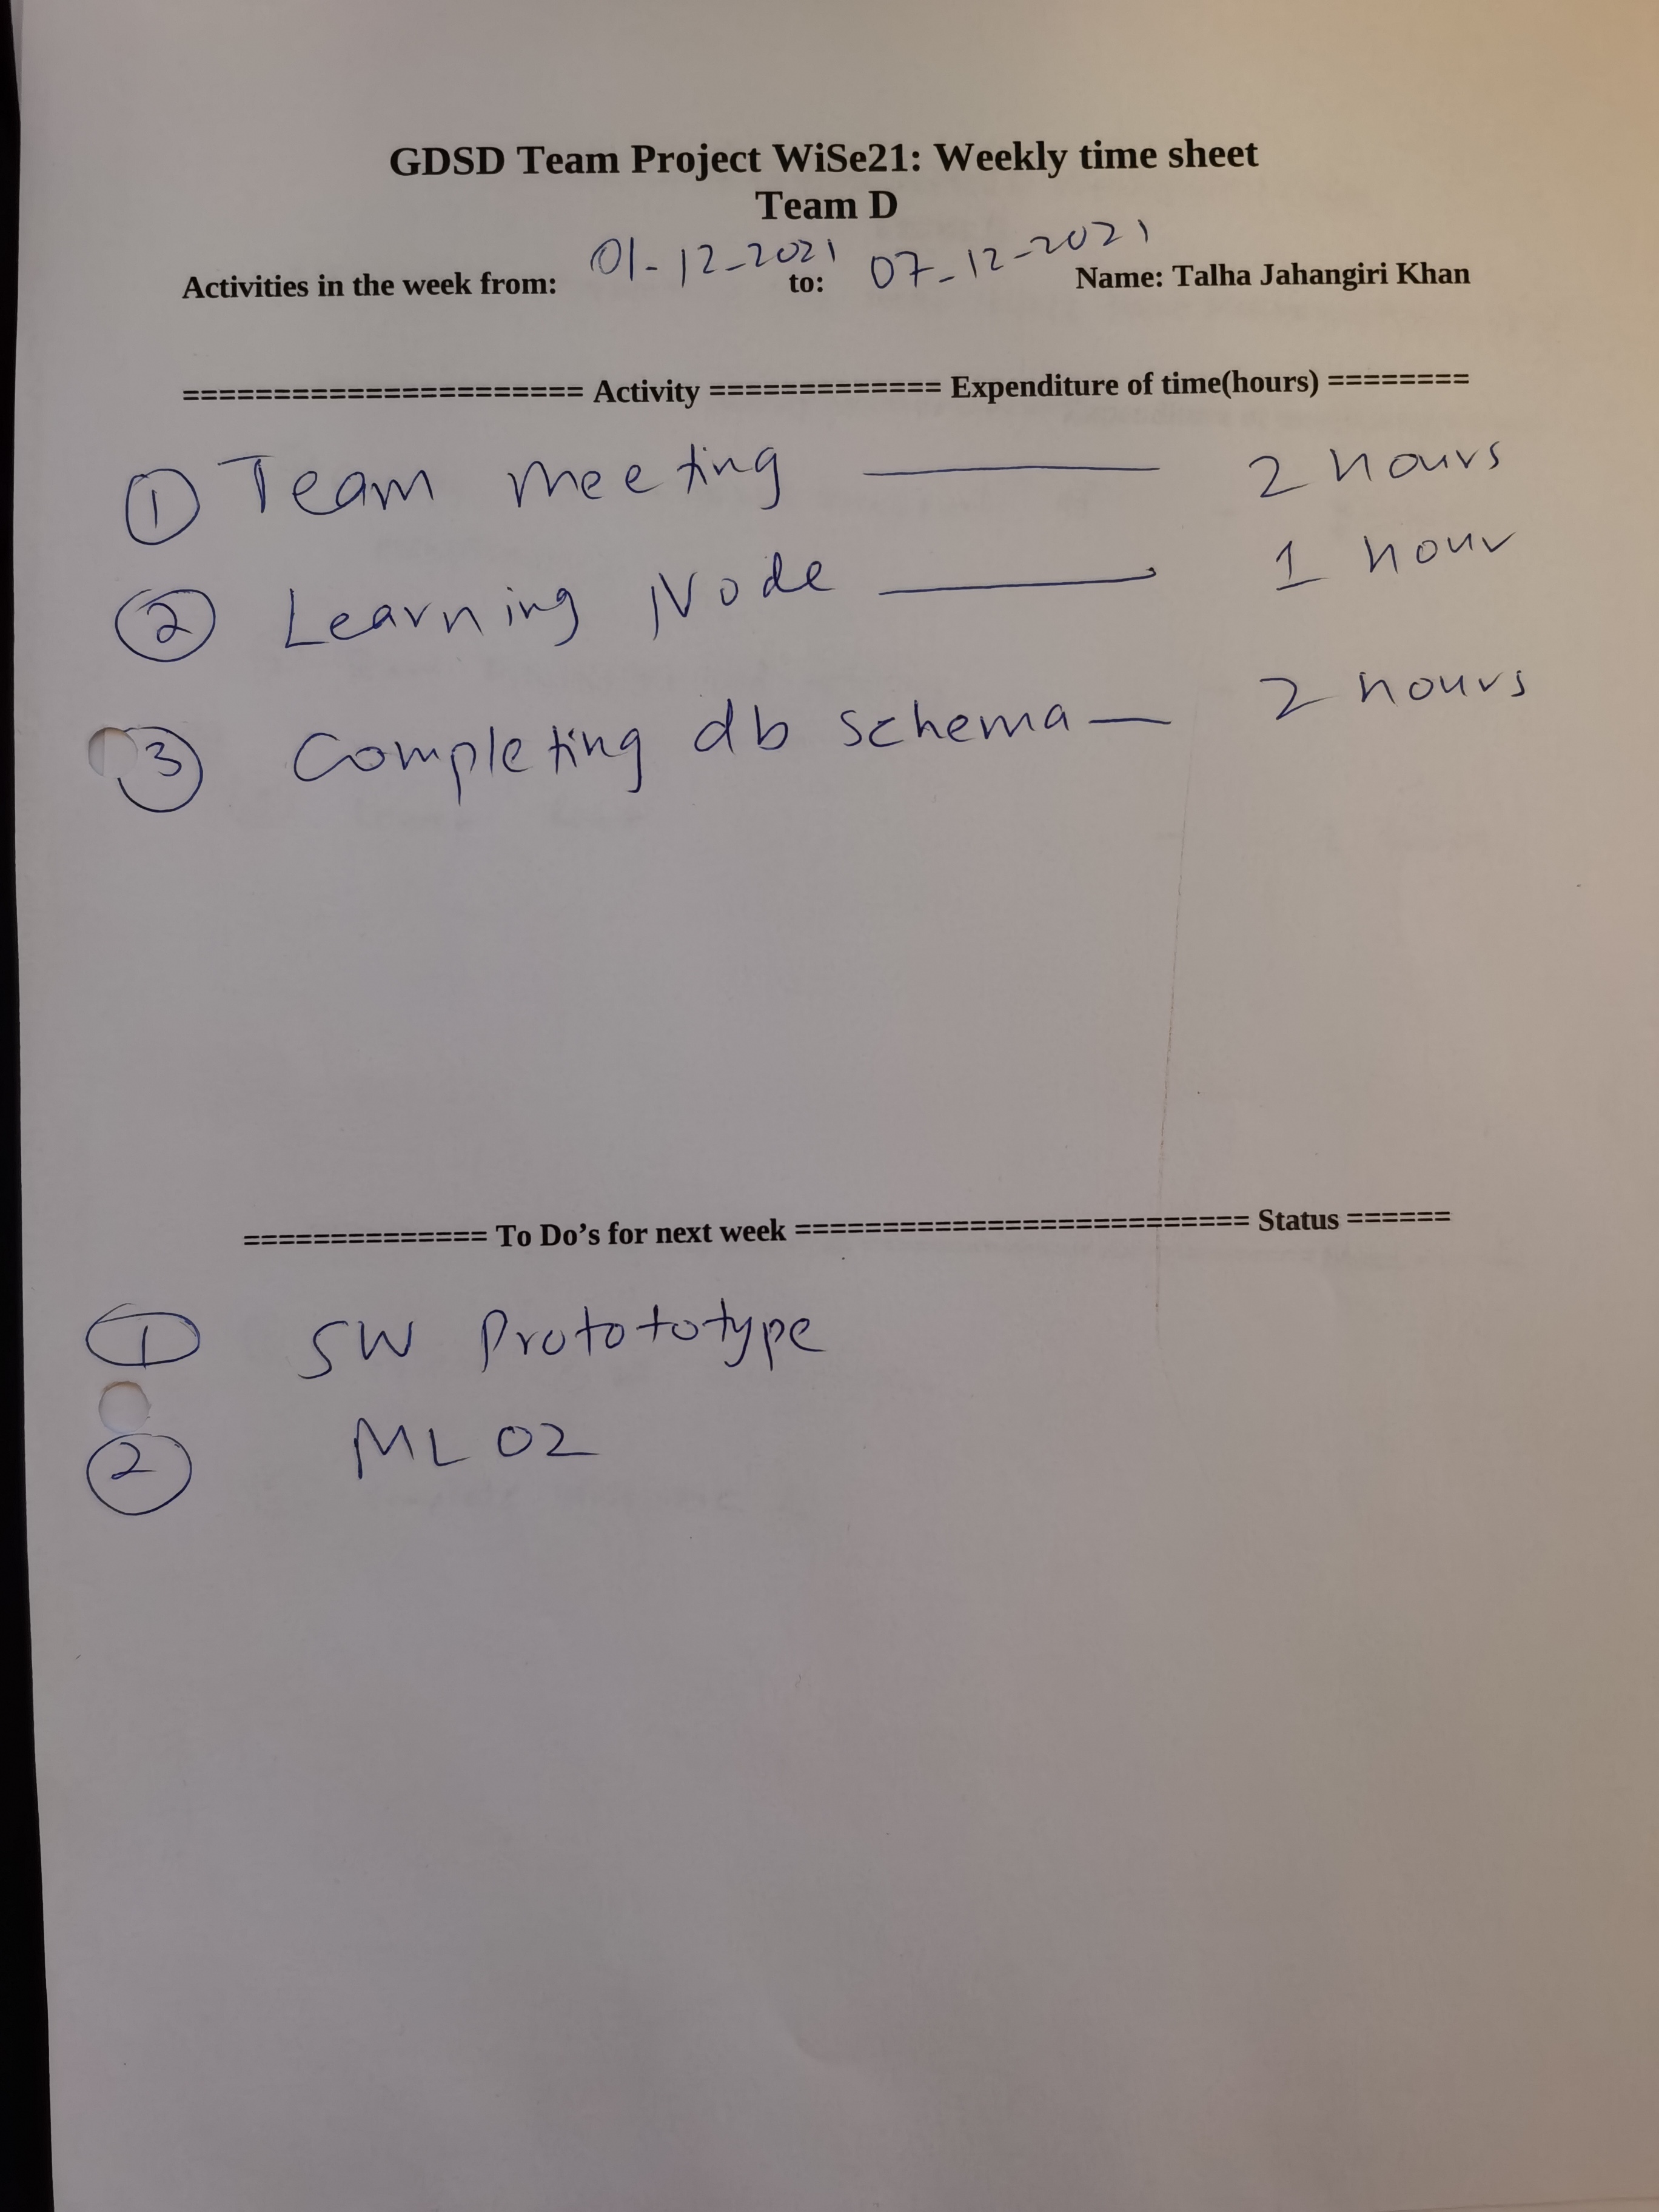 GDSD Team Project WiSe21: Weekly time sheet
Team D
Activities in the week from: 01-12-2021 to: 07-12-2021 Name: Talha Jahangiri Khan
====================== Activity ============= Expenditure of time(hours) ========
1 Team meeting — 2 hours
2 Learning Node — 1 hour
3 Completing db schema — 2 hours
============== To Do’s for next week ========================== Status ======
1 SW Protototype
2 ML 02